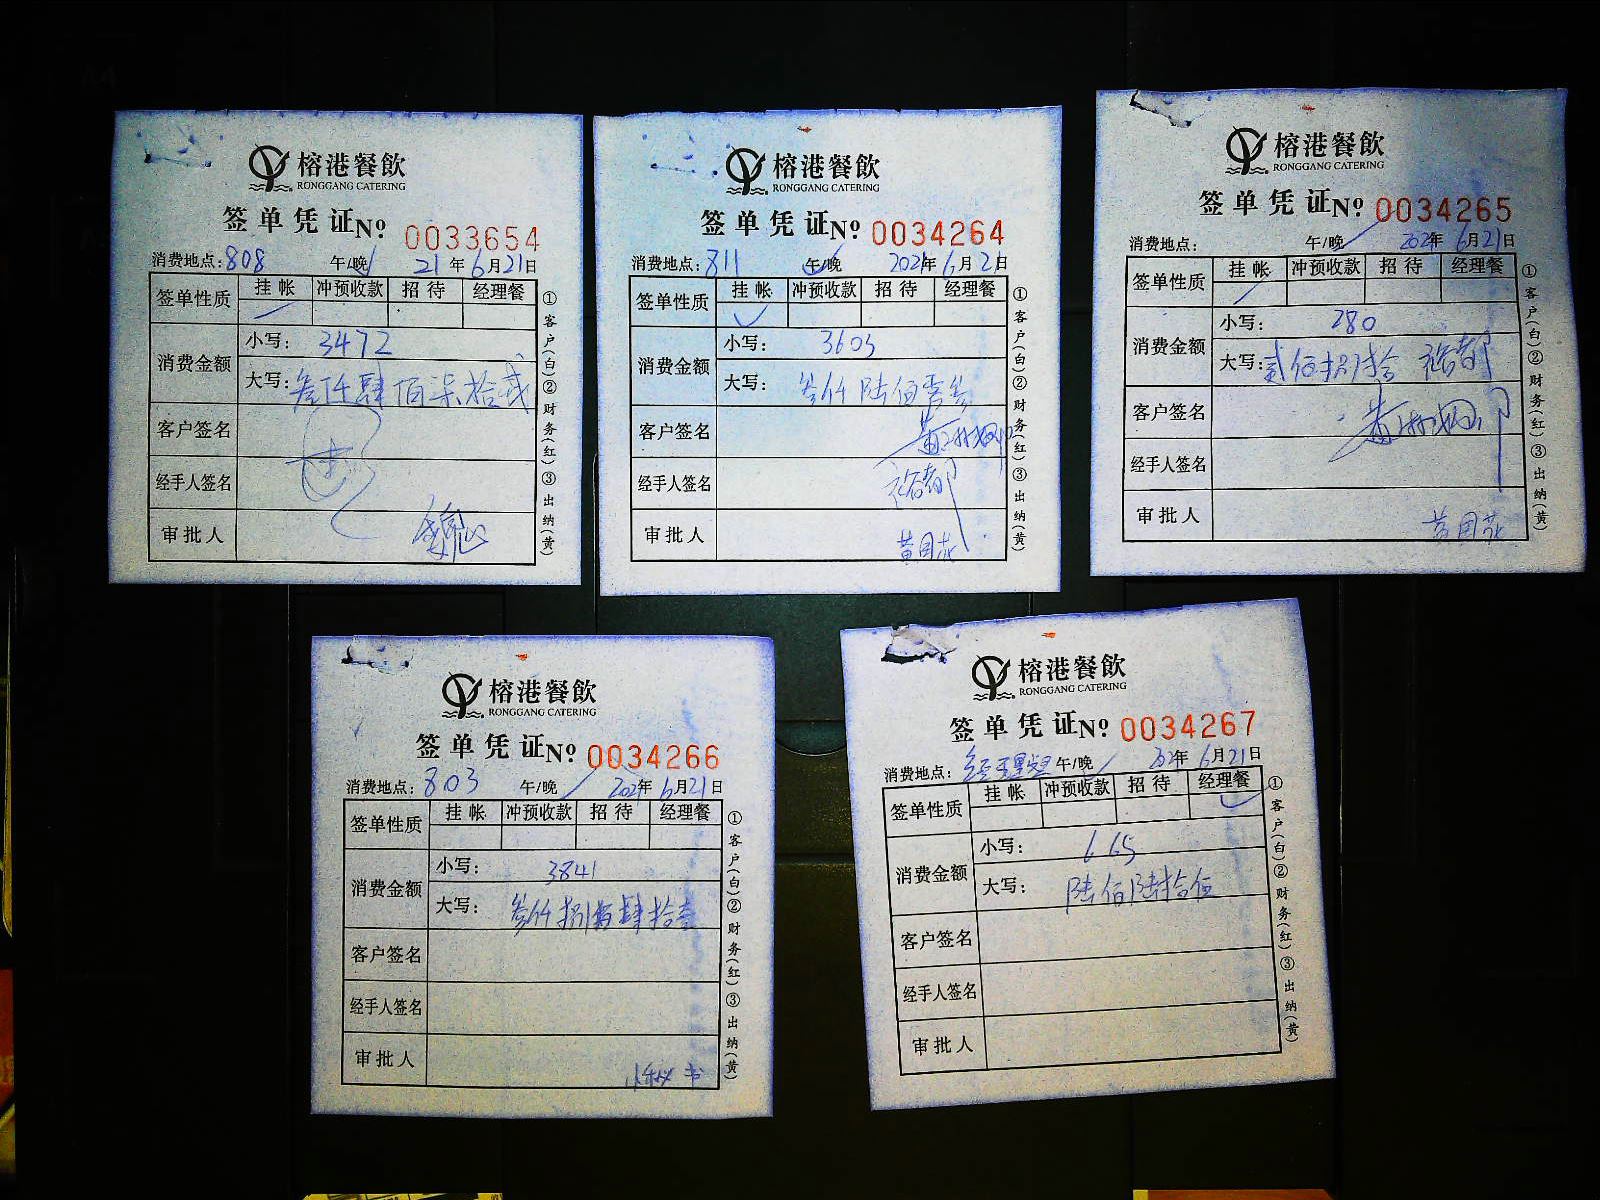 榕港餐飲
RONGGANG CATERING
签单凭证 Nº 0033654
消费地点: 808 午/晚 21年6月21日
签单性质 挂帐 冲预收款 招待 经理餐
消费金额
小写: 3472
大写: 叁仟肆佰柒拾贰
客户签名
经手人签名
审批人
①客户(白)②财务(红)③出纳(黄)
榕港餐飲
RONGGANG CATERING
签单凭证 Nº 0034264
消费地点: 811 午/晚 2021年6月21日
签单性质 挂帐 冲预收款 招待 经理餐
消费金额
小写: 3603
大写: 叁仟陆佰零叁
客户签名
经手人签名
审批人
①客户(白)②财务(红)③出纳(黄)
榕港餐飲
RONGGANG CATERING
签单凭证 Nº 0034265
消费地点: 午/晚 2021年6月21日
签单性质 挂帐 冲预收款 招待 经理餐
消费金额
小写: 280
大写: 贰佰捌拾
客户签名
经手人签名
审批人
①客户(白)②财务(红)③出纳(黄)
榕港餐飲
RONGGANG CATERING
签单凭证 Nº 0034266
消费地点: 803 午/晚 2021年6月21日
签单性质 挂帐 冲预收款 招待 经理餐
消费金额
小写: 3841
大写: 叁仟捌佰肆拾壹
客户签名
经手人签名
审批人
①客户(白)②财务(红)③出纳(黄)
榕港餐飲
RONGGANG CATERING
签单凭证 Nº 0034267
消费地点: 经理 午/晚 年6月21日
签单性质 挂帐 冲预收款 招待 经理餐
消费金额
小写: 665
大写: 陆佰陆拾伍
客户签名
经手人签名
审批人
①客户(白)②财务(红)③出纳(黄)